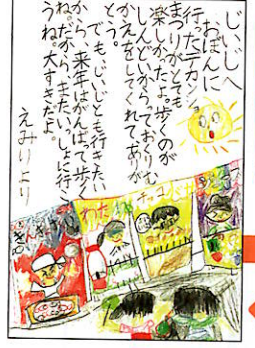 じいじへ
おぼんに
行ったデカンショ
まつりがとても
楽しかったよ。歩くのが
しんどいからっておくりむ
かえをしてくれてありが
とう。
でも、じいじとも行きたい
から、来年はがんばって歩く
ね。だから、またいっしょに行こ
うね。大すきだよ。
えみりより
わた
チョコ